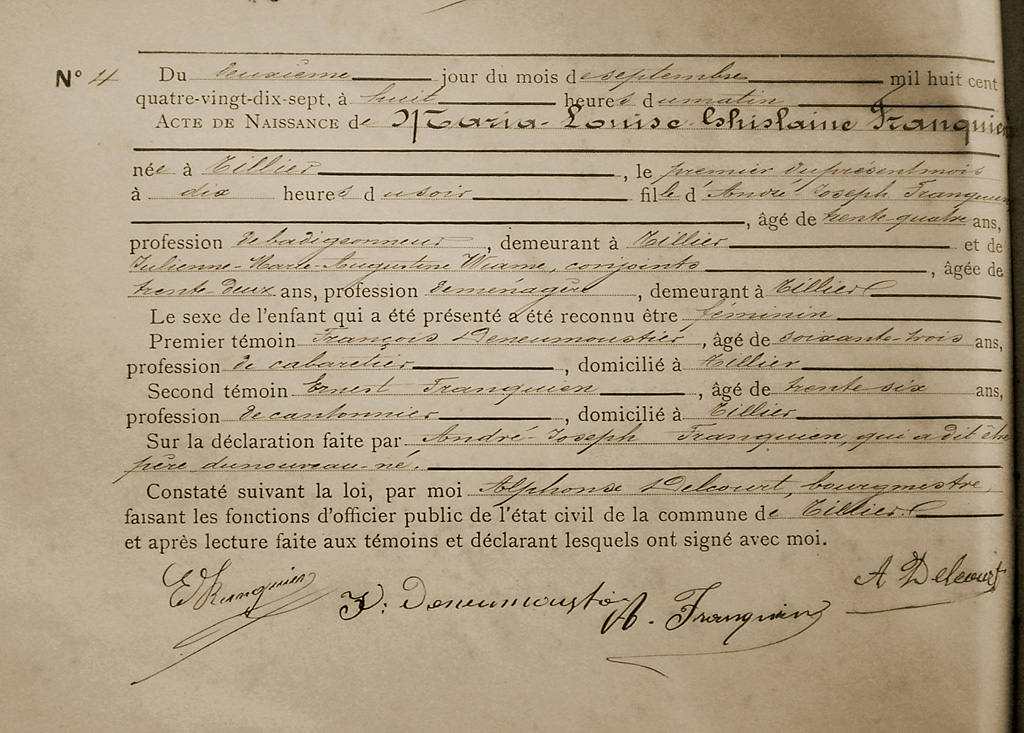 N° 4 Du deuxième jour du mois de septembre mil huit cent
quatre-vingt-dix-sept, à huit heures du matin
ACTE DE NAISSANCE de Maria-Louise-Ghislaine Franquien
née à Tillier, le premier du présent mois
à dix heures du soir fille d'André-Joseph Franquien
, âgé de trente-quatre ans,
profession de badigeonneur, demeurant à Tillier et de
Julienne-Marie-Augustine Wiame, conjoints, âgée de
trente-deux ans, profession de ménagère, demeurant à Tillier
Le sexe de l'enfant qui a été présenté a été reconnu être féminin
Premier témoin François Deneumoustier, âgé de soixante-trois ans,
profession de cabaretier, domicilié à Tillier
Second témoin Ernest Franquien, âgé de trente six ans,
profession de cantonnier, domicilié à Tillier
Sur la déclaration faite par André-Joseph Franquien, qui a dit être
père du nouveau-né.
Constaté suivant la loi, par moi Alphonse Delcourt, bourgmestre,
faisant les fonctions d'officier public de l'état civil de la commune de Tillier
et après lecture faite aux témoins et déclarant lesquels ont signé avec moi.
E Franquien F. Deneumoustier A. Franquien A Delcourt